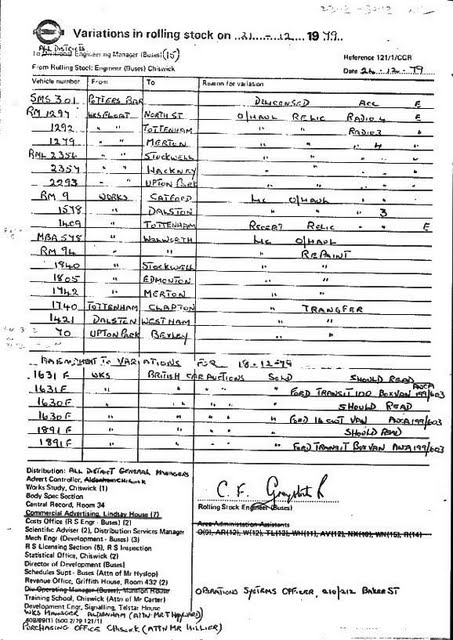 Variations in rolling stock on 21 - 12 - 1979.
ALL DISTRICTS
To Divisional Engineering Manager (Buses) (15)
Reference 121/1/CCR
From Rolling Stock Engineer (Buses) Chiswick
Date 24-12-79
Vehicle number From To Reason for variation
SMS 301 POTTERS BAR DELICENSED ACC E
RM 1297 WKS FLOAT NORTH ST O/HAUL RELIC RADIO 4 E
1292 " " TOTTENHAM " " RADIO 3 "
1279 " " MERTON " " " 4 "
RML 2356 " " STOCKWELL " " " "
2357 " " HACKNEY " " " "
2293 " " UPTON PARK " " " "
RM 9 WORKS CATFORD LIC O/HAUL
1578 " DALSTON " " 3
1409 " TOTTENHAM RECERT RELIC E
MBA 578 " WALWORTH LIC O/HAUL
RM 94 " " REPAINT
1840 " STOCKWELL " "
1805 " EDMONTON " "
1742 " MERTON " "
1740 TOTTENHAM CLAPTON " TRANSFER
1421 DALSTON WEST HAM " "
70 UPTON PARK BEXLEY " "
AMENDMENT TO VARIATIONS FOR 18-12-79
1631 F WKS BRITISH CAR AUCTIONS SOLD SHOULD READ
1631 F " " " " FORD TRANSIT 100 BOXVAN 199/603
1630 F " " " " SHOULD READ
1630 F " " " " FORD 16 CWT VAN 199/603
1891 F " " " " SHOULD READ
1891 F " " " " FORD TRANSIT BOXVAN 199/603
Distribution: ALL DISTRICT GENERAL MANAGERS
Advert Controller, Aldenham CHISWICK
Works Study, Chiswick (1)
Body Spec Section
Central Record, Room 34
Commercial Advertising, Lindsay House (7)
Costs Office (R S Engr - Buses) (2)
Scientific Adviser (2), Distribution Services Manager
Mech Engr (Development - Buses) (3)
R S Licensing Section (5), R S Inspection
Statistical Office, Chiswick (2)
Director of Development (Buses)
Schedules Supt - Buses (Attn of Mr Hyslop)
Revenue Office, Griffith House, Room 432 (2)
Div Operating Manager (Buses), Mansion House
Training School, Chiswick (Attn of Mr Carter)
Development Engr, Signalling, Telstar House
WKS MANAGER ALDENHAM
PURCHASING OFFICE CHISWICK (ATTN MR HILLIER)
Rolling Stock Engineer (Buses)
Area Administration Assistants
OPERATING SYSTEMS OFFICER, 210/212 BAKER ST